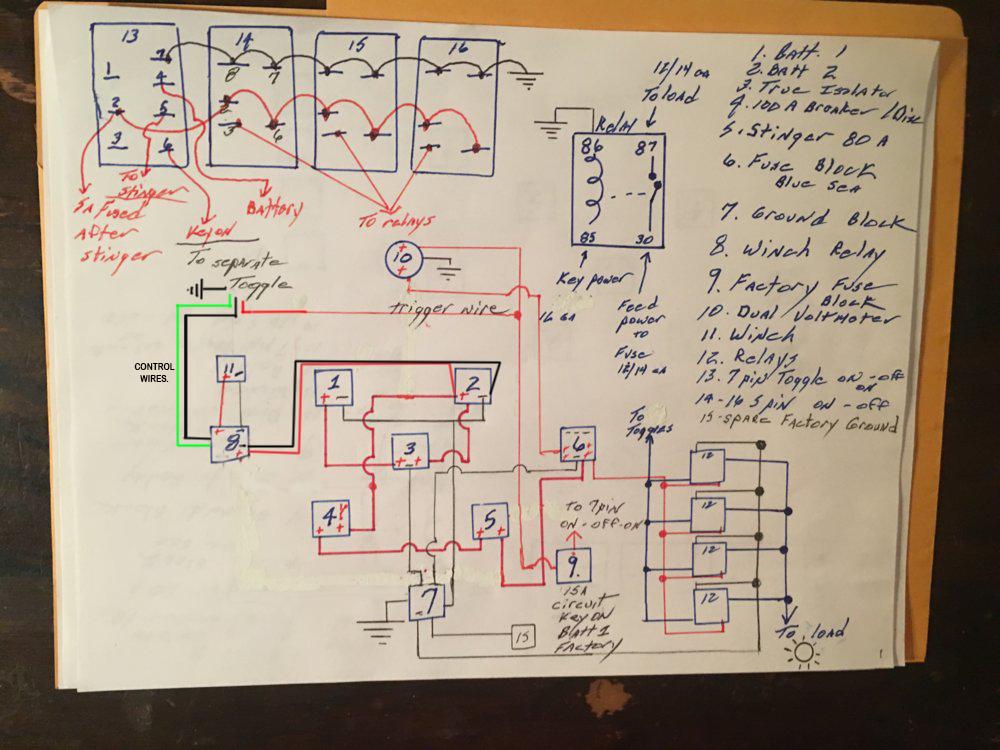 13
14
15
16
7
1
4
2
5
3
6
8 7
2
3 6
To
Stinger
5A Fused
After
Stinger
Key on
To separate
Toggle
Battery
To relays
12/14 GA
To load
Relay
86 87
85 30
Key power
Feed
power
to
Fuse
12/14 GA
1. Batt. 1
2. Batt 2
3. True Isolator
4. 100 A Breaker / Disc
5. Stinger 80 A
6. Fuse Block
Blue Sea
7. Ground Block
8. Winch Relay
9. Factory Fuse
Block
10. Dual Voltmeter
11. Winch
12. Relays
13. 7 pin Toggle on-off
on
14-16 5 pin on-off
15-spare Factory Ground
10
+
+
trigger wire
16 GA
CONTROL
WIRES.
11
1
+ -
2
+ -
8
3
+ -
4
+ +
5
+ +
6
7
9.
To 7pin
on-off-on
15A
circuit
Key ON
Batt 1
Factory
15
To
Toggles
12
12
12
12
To load
1